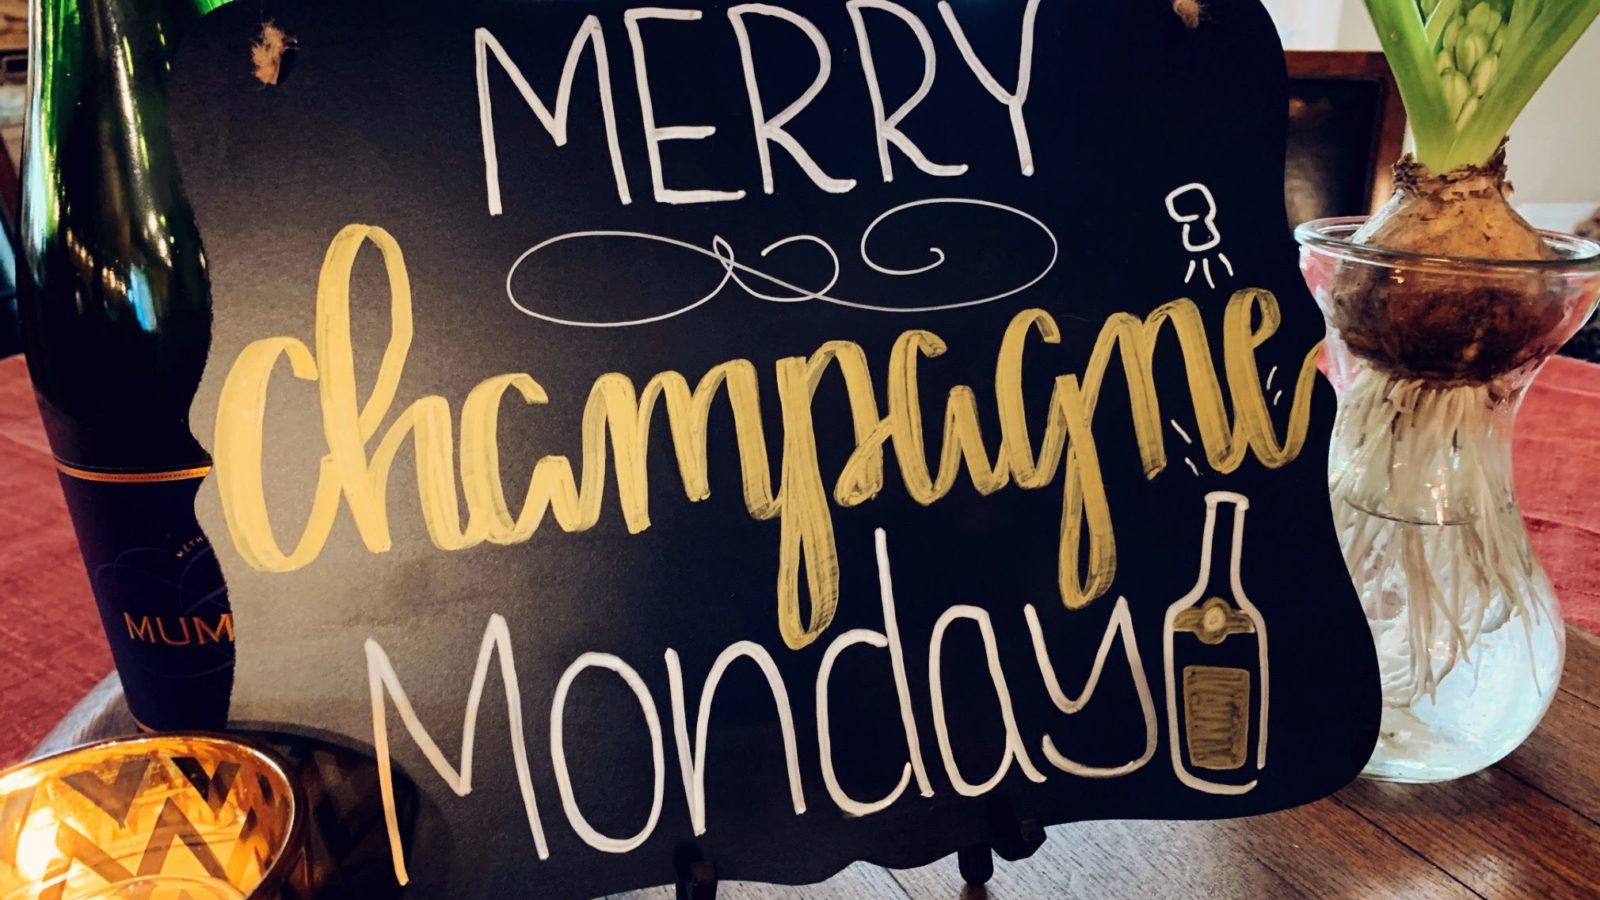 MERRY
Champagne
Monday
MUM